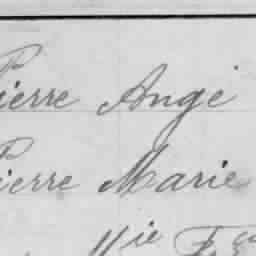 Pierre Ange
Pierre Marie
Mie Fs